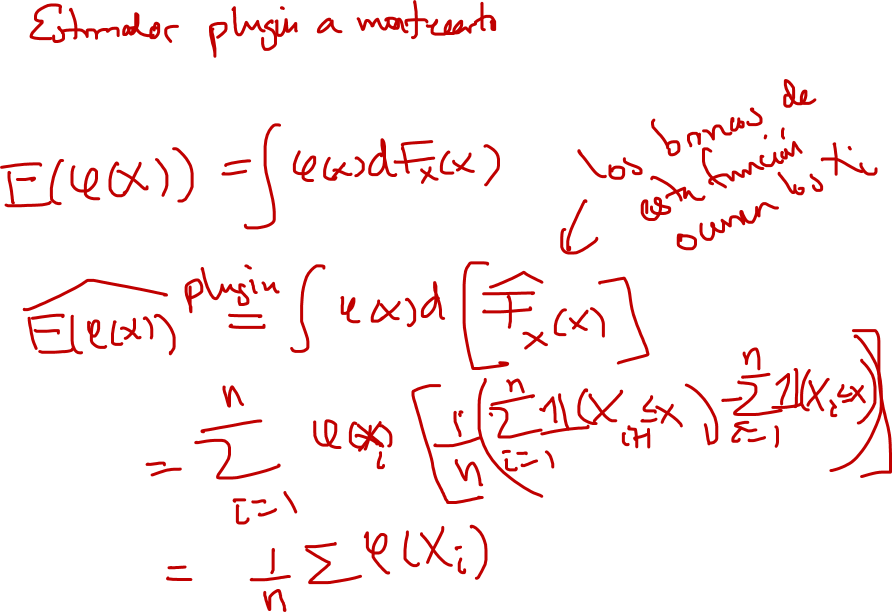 Estimador plugin a montecarlo
E(φ(X)) = ∫ φ(x) dF_X(x)
los brincos de
esta función
ocurren los X_i
\widehat{E(φ(X))} plugin = ∫ φ(x) d [ \widehat{F}_X(x) ]
= \sum_{i=1}^{n} φ(X_i) [ \frac{1}{n} ( \sum_{i=1}^{n} 1(X_{i+1} ≤ x) ) - \sum_{i=1}^{n} 1(X_i ≤ x) ) ]
= \frac{1}{n} Σ φ(X_i)